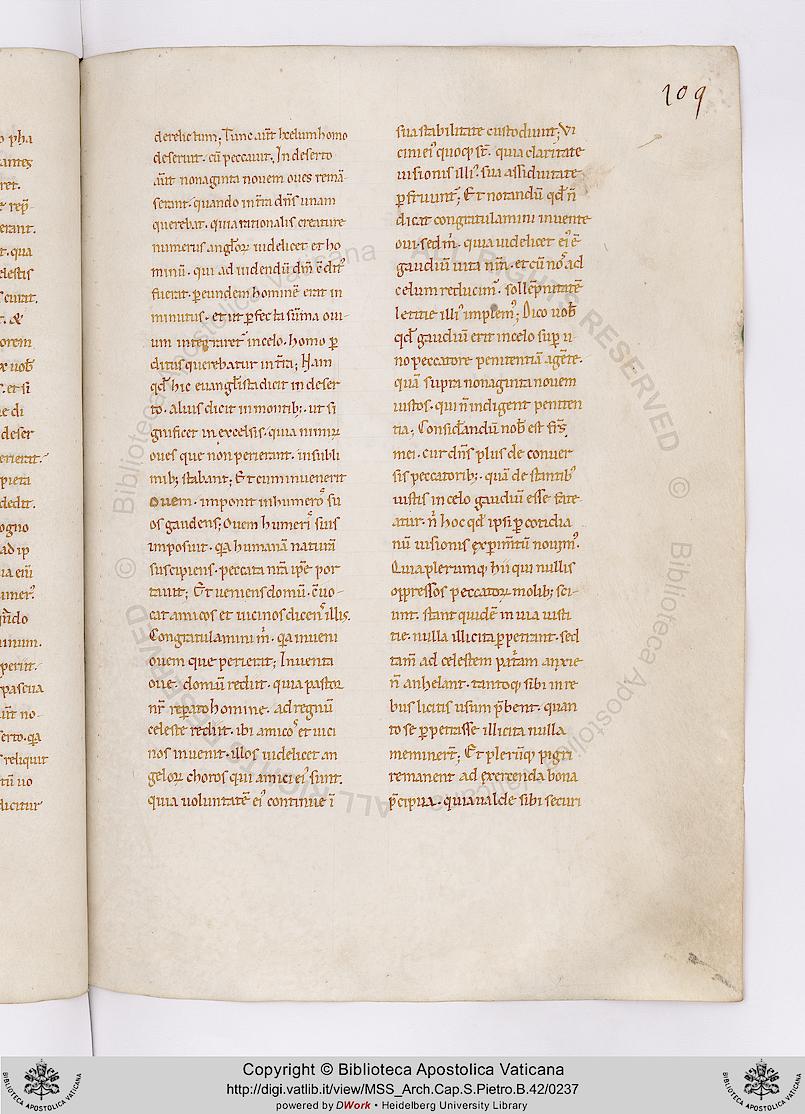 109
derelictum; Tunc aut̄ hoc celum homo
deseruit. cū peccauit. In deserto
aūt nonaginta nouem oues remā
serant. quando in t̄ra dn̄s unam
querebat. quia rationalis creature
numerus angłor̄ uidelicet et ho
minū. qui ad uidendū dm̄ ꝯditꝰ
fuerat. ꝑeundem hominē erat in
minutus. et ut ꝑfecta sūma oui
um integraret᷑ in celo. homo ꝑ
ditus querebatur in t̄ra; Nam
qd̄ hic euangłista dicit in deser
to. alius dicit in montibꝫ. ut si
gnificet in excelsis. quia nimiꝝ
oues que non perierant. in subli
mibꝫ stabant; Et cum inuenerit
ouem. imponit in humeroˢ su
os gaudens; Ouem humeriˢ suis
imposuit. qa humanā naturā
suscipiens. peccata nr̄a ip̄e por
tauit; Et ueniens domū. ꝯuo
cat amicos et uicinos dicenˢ illis.
Congratulamini m̄. qa inueni
ouem que perierat; Inuenta
oue. domū rediit. quia pastor
nr̄ reꝑato homine. ad regnū
celeste rediit. ibi amicoˢ et uici
nos inuenit. illos uidelicet an
gelor̄ choros qui amici eiꝰ sunt.
quia uoluntatē eiꝰ continue ī
sua stabilitate custodiunt; Vi
cini eiꝰ quoqꝫ st̄. quia claritate
uisionis illiꝰ sua assiduitate
ꝑfruunt᷑; Et notandū qd̄ n̄
dicat congratulamini inuente
oui. sed m̄. quia uidelicet eiꝰ ē
gaudiū uita nr̄a. et cū noˢ ad
celum reducimꝰ. sollēpnitatē
letitie illiꝰ implemꝰ; Dico uob̄
qd̄ gaudiū erit in celo suꝑ u
no peccatore penitentiā agēte.
quā supra nonaginta nouem
iustos. qui n̄ indigent peniten
tia; Considandū nob̄ est fr̄s
mei. cur dn̄s plus de conuer
sis peccatoribꝫ. quā de stantibꝰ
iustis in celo gaudiū esse fate
atur. n̄ hoc qd̄ ipsi ꝑ cotidia
nū uisionis exꝑim̄tū nouimꝰ.
Quia plerumqꝫ hii qui nullis
oppressos peccatorꝫ molibꝫ sci
unt. stant quidē in uia iusti
tie. nulla illicita ꝑpetrant. sed
tam̄ ad celestem patr̄am anxie
n̄ anhelant. tantoqꝫ sibi in re
bus licitis usum p̄bent. quan
to se ꝑpetrasse illicita nulla
meminer̄t; Et plerūqꝫ pigri
remanent ad exercenda bona
p̄cipua. quia ualde sibi securi
Copyright © Biblioteca Apostolica Vaticana
http://digi.vatlib.it/view/MSS_Arch.Cap.S.Pietro.B.42/0237
powered by DWork • Heidelberg University Library